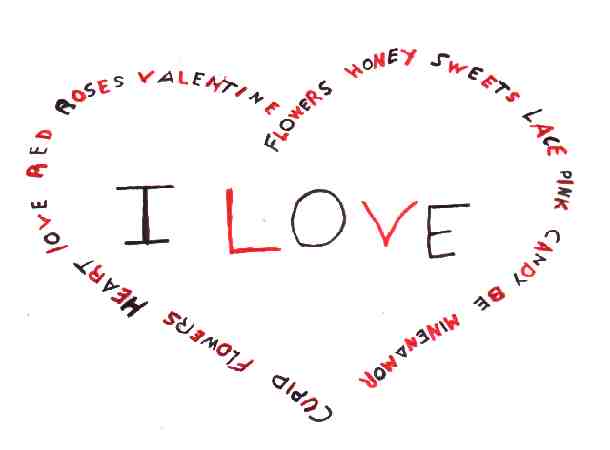 CUPID FLOWERS HEART lOVE RED ROSES VALENTINE
FLOWERS HONEY SWEETS LACE PINK CANDY BE MINENAMOR
I LOVE